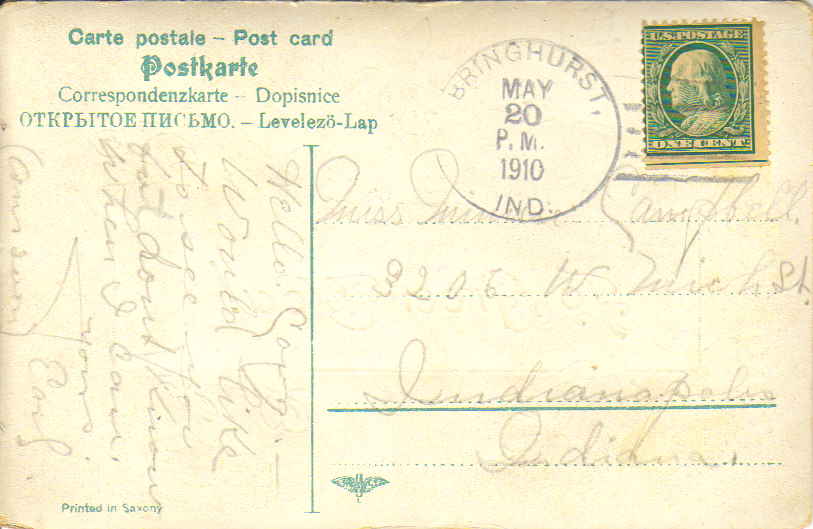 Carte postale – Post card
Postkarte
Correspondenzkarte – Dopisnice
ОТКРЫТОЕ ПИСЬМО. – Levelezö-Lap
BRINGHURST,
MAY
20
P.M.
1910
IND.
U.S. POSTAGE
ONE CENT.
Miss Campbell.
3205 W. Mich St.
Indianapolis
Indiana.
Hello.
Would like
to see you
but dont know
when I can.
yours.
Earl
Printed in Saxony